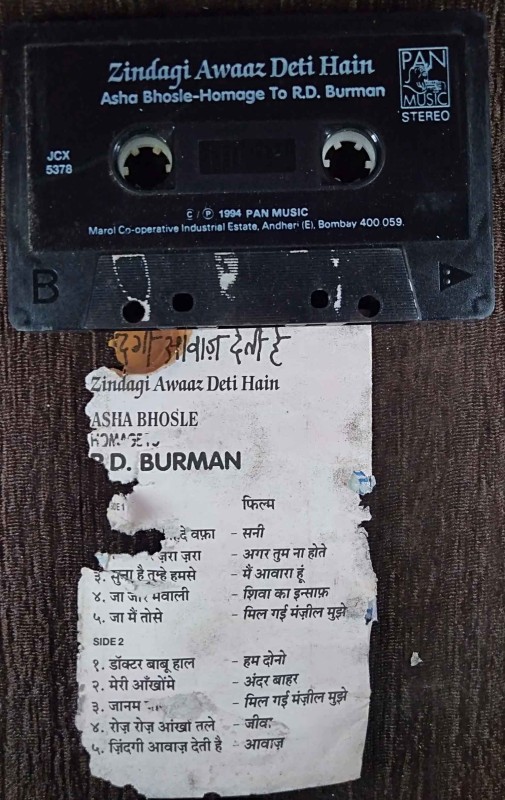 Zindagi Awaaz Deti Hain
Asha Bhosle-Homage To R.D. Burman
PAN
MUSIC
STEREO
JCX
5378
C / P 1994 PAN MUSIC
Marol Co-operative Industrial Estate, Andheri (E), Bombay 400 059.
B
आवाज़ देती है
Zindagi Awaaz Deti Hain
ASHA BHOSLE
HOMAGE TO
R.D. BURMAN
SIDE 1 फिल्म
वफ़ा - सनी
ज़रा ज़रा - अगर तुम ना होते
३. सुना है तुम्हे हमसे - मैं आवारा हूं
४. जा जा मवाली - शिवा का इन्साफ़
५. जा मैं तोसे - मिल गई मंज़ील मुझे
SIDE 2
१. डॉक्टर बाबू हाल - हम दोनो
२. मेरी आँखोंमे - अंदर बाहर
३. जानम - मिल गई मंज़ील मुझे
४. रोज़ रोज़ आंखां तले - जीवा
५. ज़िंदगी आवाज़ देती है - आवाज़